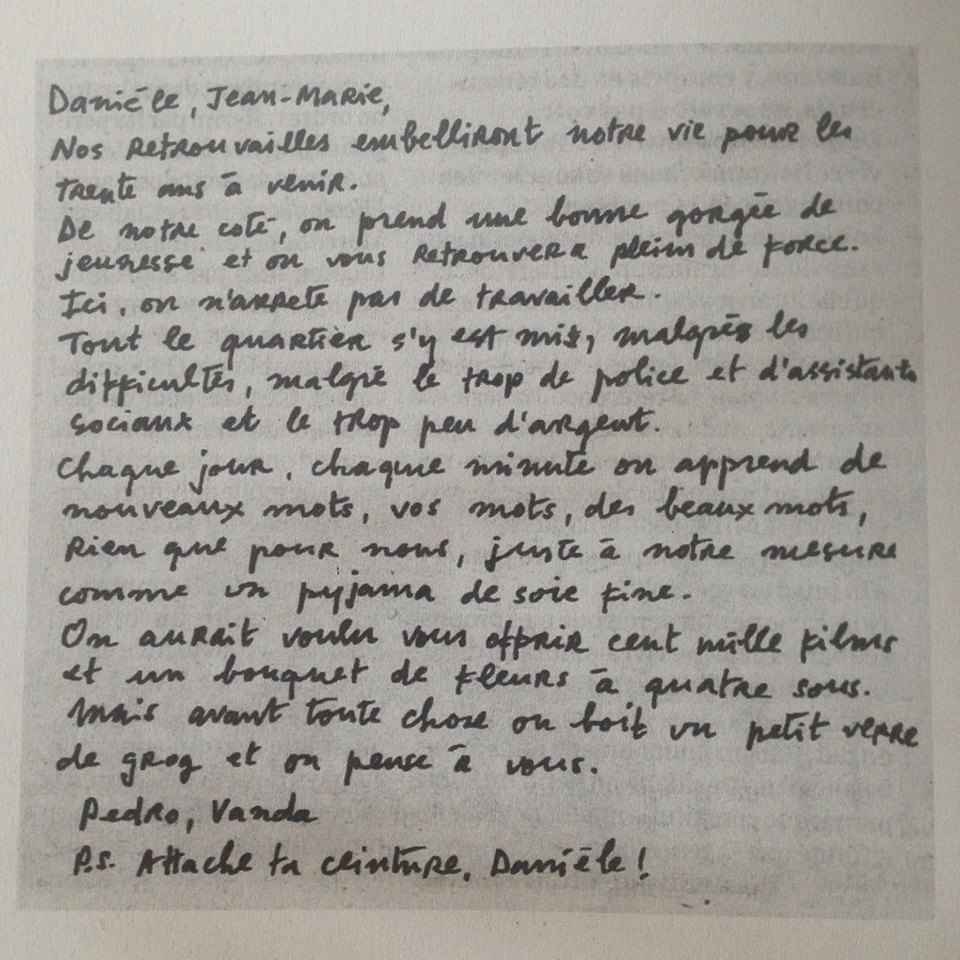 Danièle, Jean-Marie,
Nos retrouvailles embelliront notre vie pour les
trente ans à venir.
De notre coté, on prend une bonne gorgée de
jeunesse et on vous retrouvera pleins de force.
Ici, on n'arrete pas de travailler.
Tout le quartier s'y est mis, malgrés les
difficultés, malgré le trop de police et d'assistants
sociaux et le trop peu d'argent.
Chaque jour, chaque minute on apprend de
nouveaux mots, vos mots, des beaux mots,
rien que pour nous, juste à notre mesure
comme un pyjama de soie fine.
On aurait voulu vous offrir cent mille films
et un bouquet de fleurs à quatre sous.
Mais avant toute chose on boit un petit verre
de grog et on pense à vous.
Pedro, Vanda
P.S. Attache ta ceinture, Danièle!